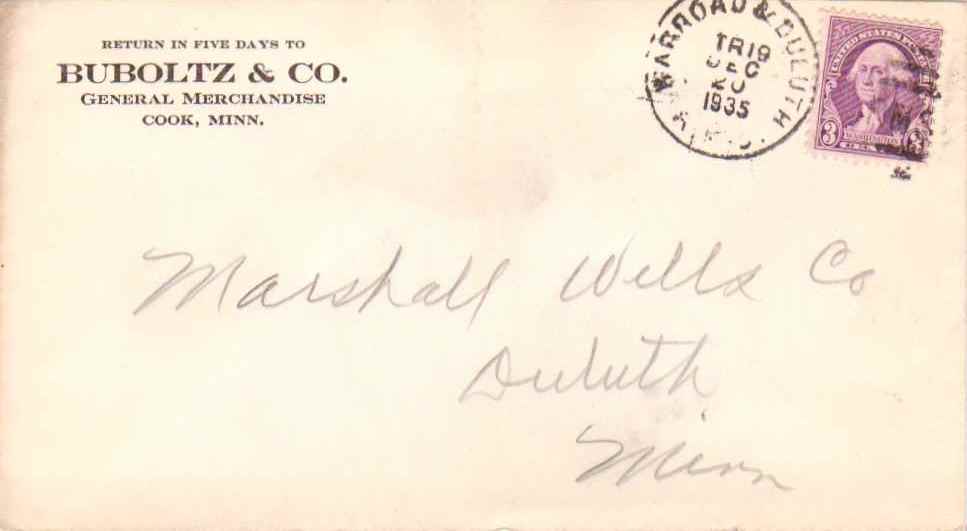 RETURN IN FIVE DAYS TO
BUBOLTZ & CO.
GENERAL MERCHANDISE
COOK, MINN.
WARROAD & DULUTH
TR19
DEC
20
1935
R.P.O.
UNITED STATES
3 WASHINGTON 3
Marshall Wells Co
Duluth
Minn